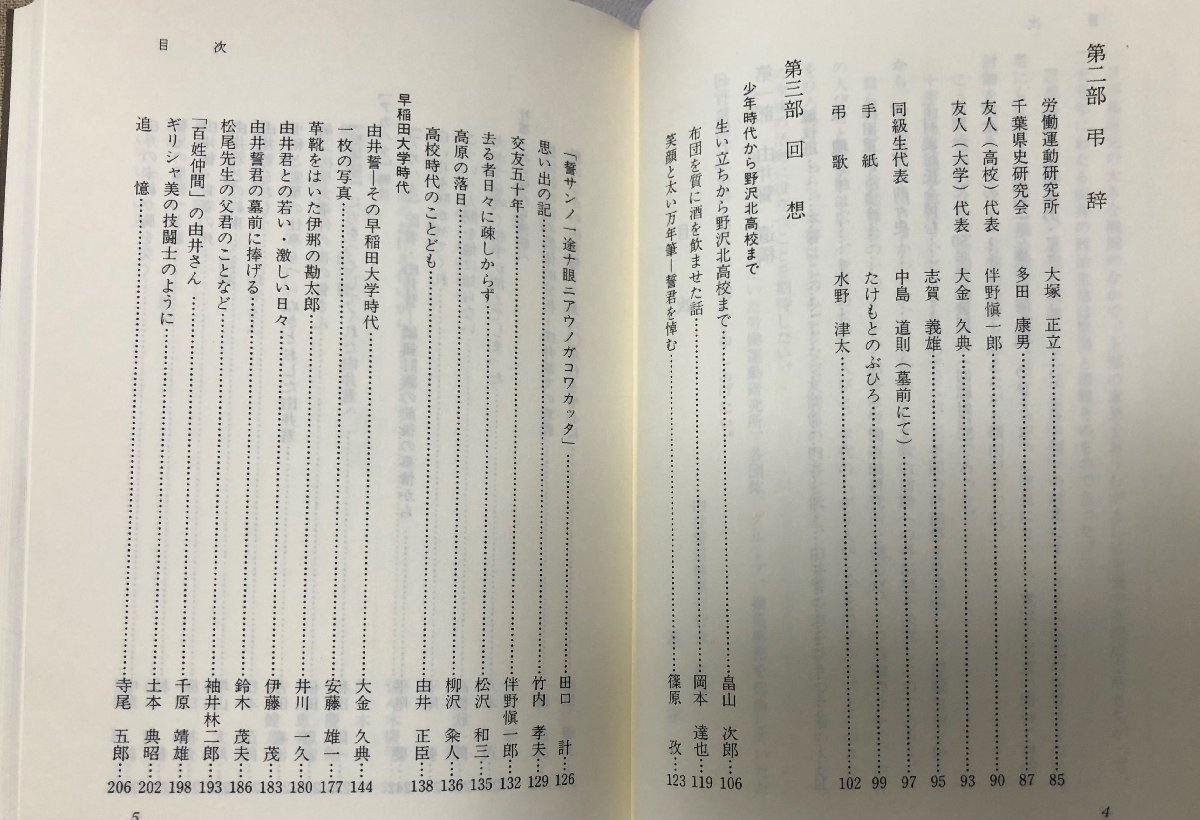 第二部 弔 辞
労働運動研究所 大塚 正立……85
千葉県史研究会 多田 康男……87
友人（高校）代表 伴野愼一郎……90
友人（大学）代表 大金 久典……93
志賀 義雄……95
同級生代表 中島 道則（墓前にて）……97
手 紙 たけもとのぶひろ……99
弔 歌 水野 津太……102
第三部 回 想
少年時代から野沢北高校まで
生い立ちから野沢北高校まで……畠山 次郎 106
布団を質に酒を飲ませた話……岡本 達也 119
笑顔と太い万年筆―誓君を悼む……篠原 孜 123
4
目 次
「誓サンノ一途ナ眼ニアウノガコワカッタ」……田口 計 126
思い出の記……竹内 孝夫 129
交友五十年……伴野愼一郎 132
去る者日々に疎しからず……松沢 和三 135
高原の落日……柳沢 粂人 136
高校時代のことども……由井 正臣 138
早稲田大学時代
由井誓―その早稲田大学時代……大金 久典 144
一枚の写真……安藤 雄一 177
革靴をはいた伊那の勘太郎……井川 一久 180
由井君との若い・激しい日々……伊藤 茂 183
由井誓君の墓前に捧げる……鈴木 茂夫 186
松尾先生の父君のことなど……袖井林二郎 193
「百姓仲間」の由井さん……千原 靖雄 198
ギリシャ美の技闘士のように……土本 典昭 202
追 憶……寺尾 五郎 206
5